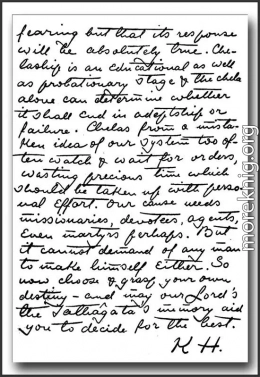 fearing but that its response
will be absolutely true. Che-
laship is an educational as well
as probationary stage & the chela
alone can determine whether
it shall end in adeptship or
failure. Chelas from a mista-
ken idea of our system too of-
ten watch & wait for orders,
wasting precious time which
should be taken up with perso-
nal effort. Our cause needs
missionaries, devotees, agents,
even martyrs perhaps. But
it cannot demand of any man
to make himself either. So
now choose & grasp your own
destiny - and may our Lord's
the Tathâgata's memory aid
you to decide for the best.
K H.
moreknig.org